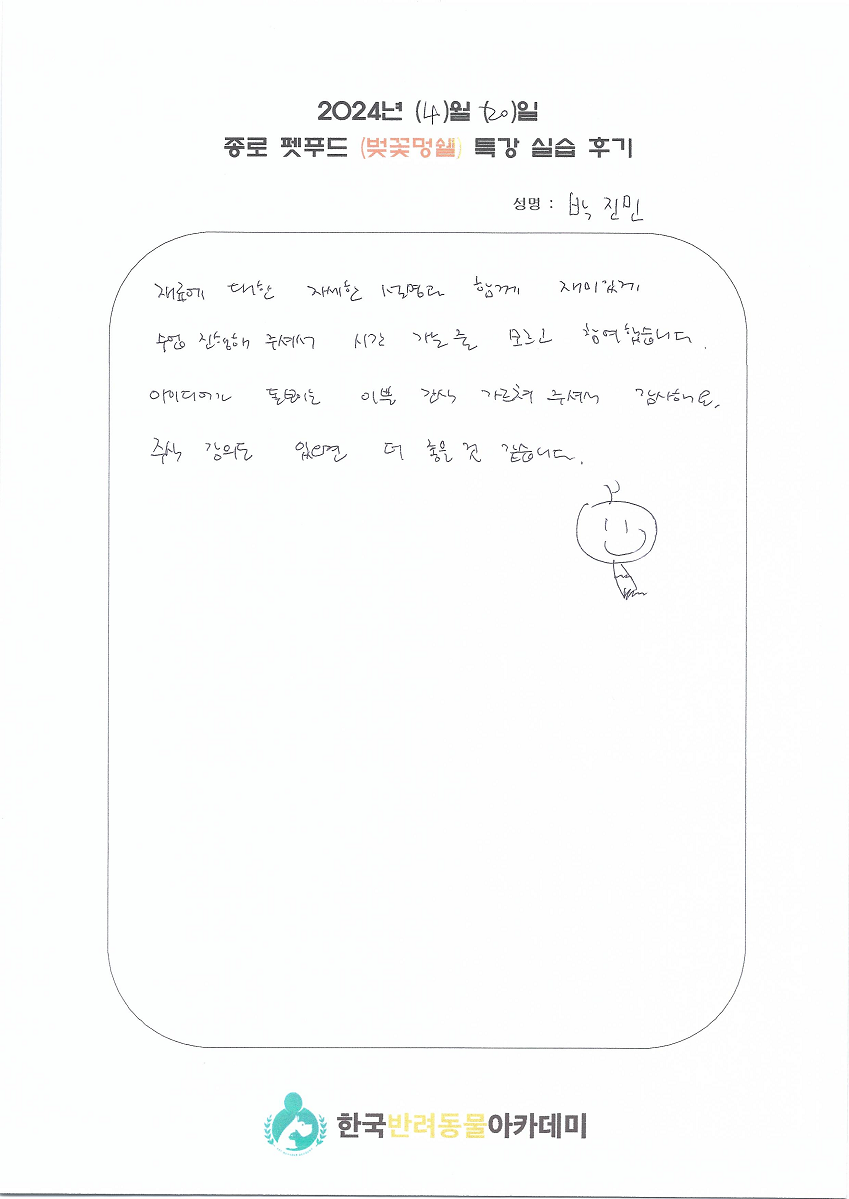 2024년 (4)월 (20)일
종로 펫푸드 (벚꽃멍쉘) 특강 실습 후기
성명 : 박진민
재료에 대한 자세한 설명과 함께 재미있게
수업 진행해 주셔서 시간 가는 줄 모르고 참여했습니다.
아이디어가 돋보이는 이쁜 간식 가르쳐 주셔서 감사해요.
주식 강의도 있으면 더 좋을 것 같습니다.
한국반려동물아카데미